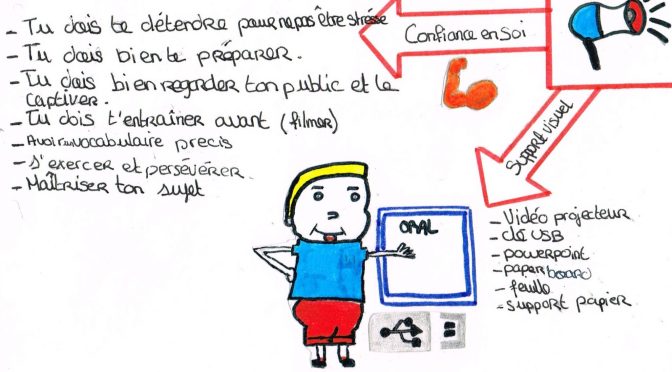 - Tu dois te détendre pour ne pas être stressé
- Tu dois bien te préparer.
- Tu dois bien regarder ton public et le
captiver.
- Tu dois t'entraîner avant (filmer)
- Avoir un vocabulaire precis
- S'exercer et persévérer.
- Maîtriser ton sujet
Confiance en soi
Support visuel
ORAL
- Vidéo projecteur
- clé USB
- powerpoint
- paperboard
- feuille
- support papier